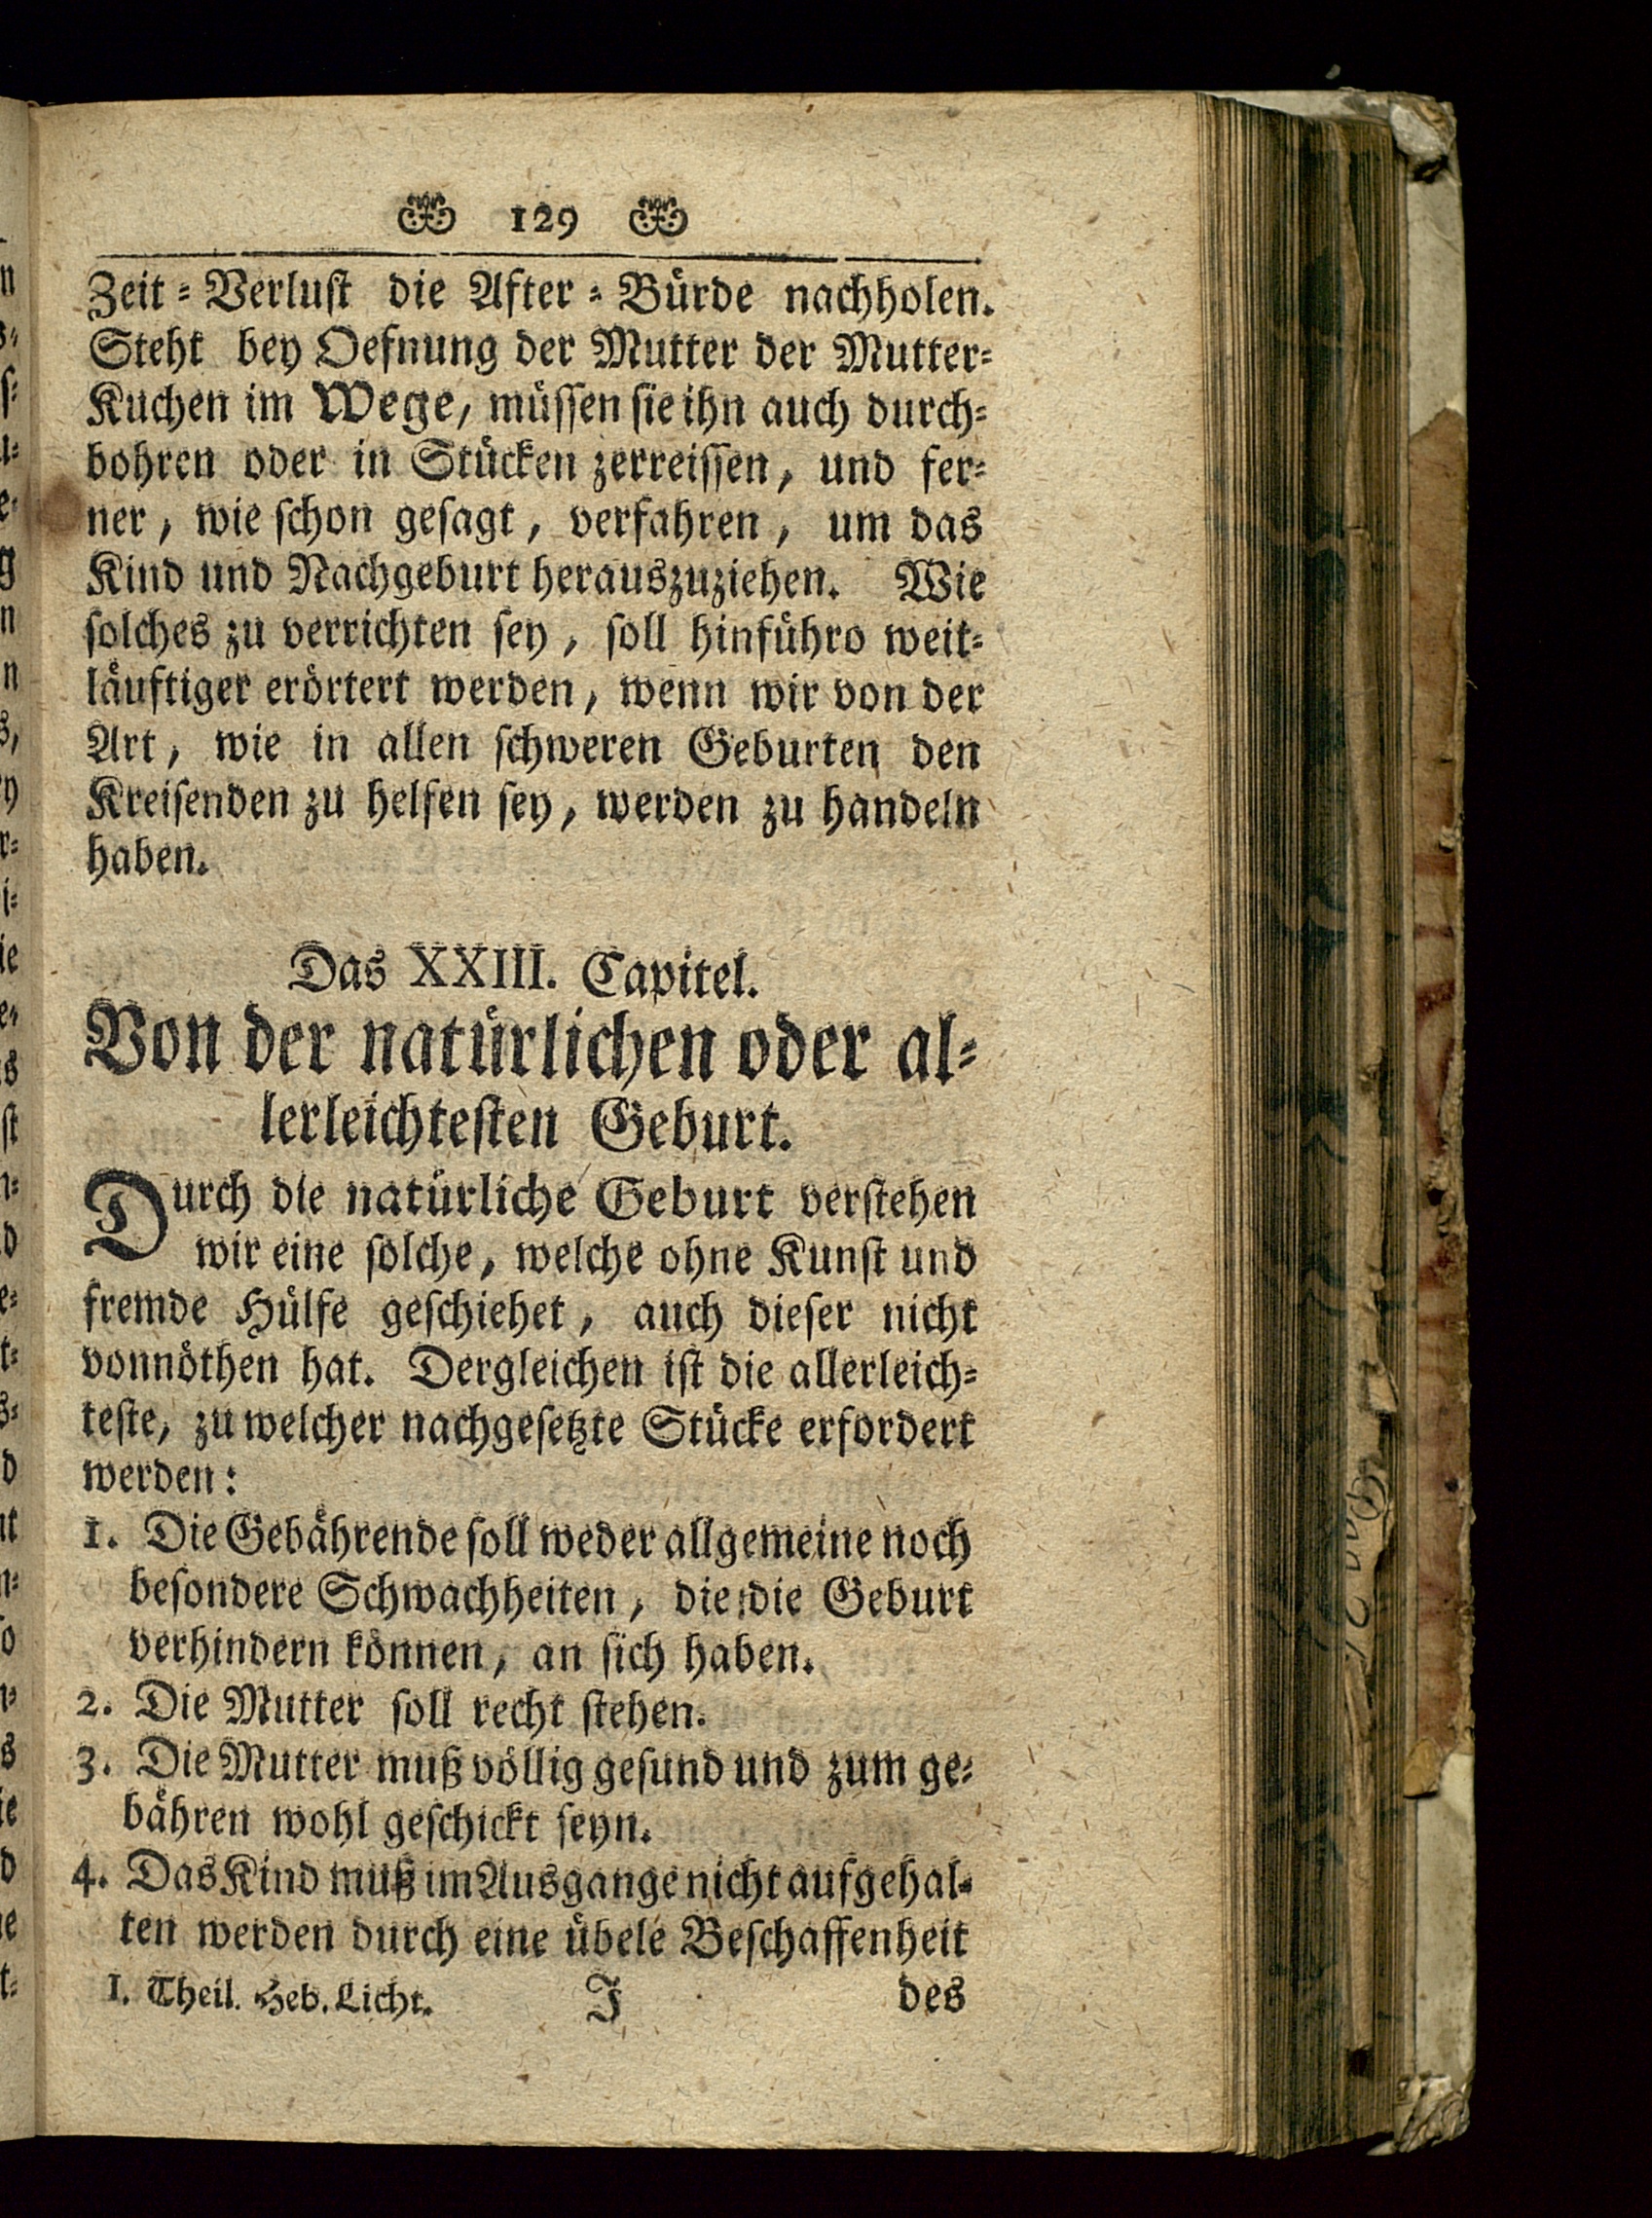 129
Zeit-Verlust die After-Bürde nachholen.
Steht bey Oefnung der Mutter der Mutter-
Kuchen im Wege, müssen sie ihn auch durch-
bohren oder in Stücken zerreissen, und fer-
ner, wie schon gesagt, verfahren, um das
Kind und Nachgeburt herauszuziehen. Wie
solches zu verrichten sey, soll hinführo weit-
läuftiger erörtert werden, wenn wir von der
Art, wie in allen schweren Geburten den
Kreisenden zu helfen sey, werden zu handeln
haben.
Das XXIII. Capitel.
Von der natürlichen oder al-
lerleichtesten Geburt.
Durch die natürliche Geburt verstehen
wir eine solche, welche ohne Kunst und
fremde Hülfe geschiehet, auch dieser nicht
vonnöthen hat. Dergleichen ist die allerleich-
teste, zu welcher nachgesetzte Stücke erfordert
werden:
1. Die Gebährende soll weder allgemeine noch
besondere Schwachheiten, die die Geburt
verhindern können, an sich haben.
2. Die Mutter soll recht stehen.
3. Die Mutter muß völlig gesund und zum ge-
bähren wohl geschickt seyn.
4. Das Kind muß im Ausgange nicht aufgehal-
ten werden durch eine übele Beschaffenheit
I. Theil. Heb. Licht. J des